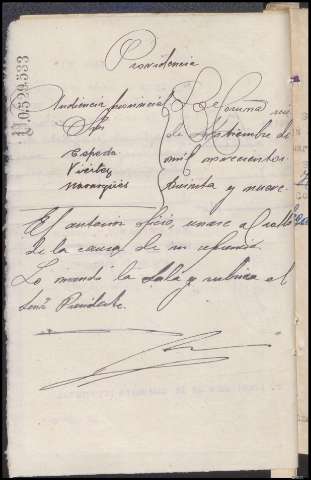 Providencia
Audiencia provincial
Sres
Espeda
Vieites
La Coruña
de Septiembre de
mil novecientos
treinta y nueve
El anterior oficio, unase al rollo
de la causa de su referencia.
Lo mandó la Sala y rubrica el
Señor Presidente.